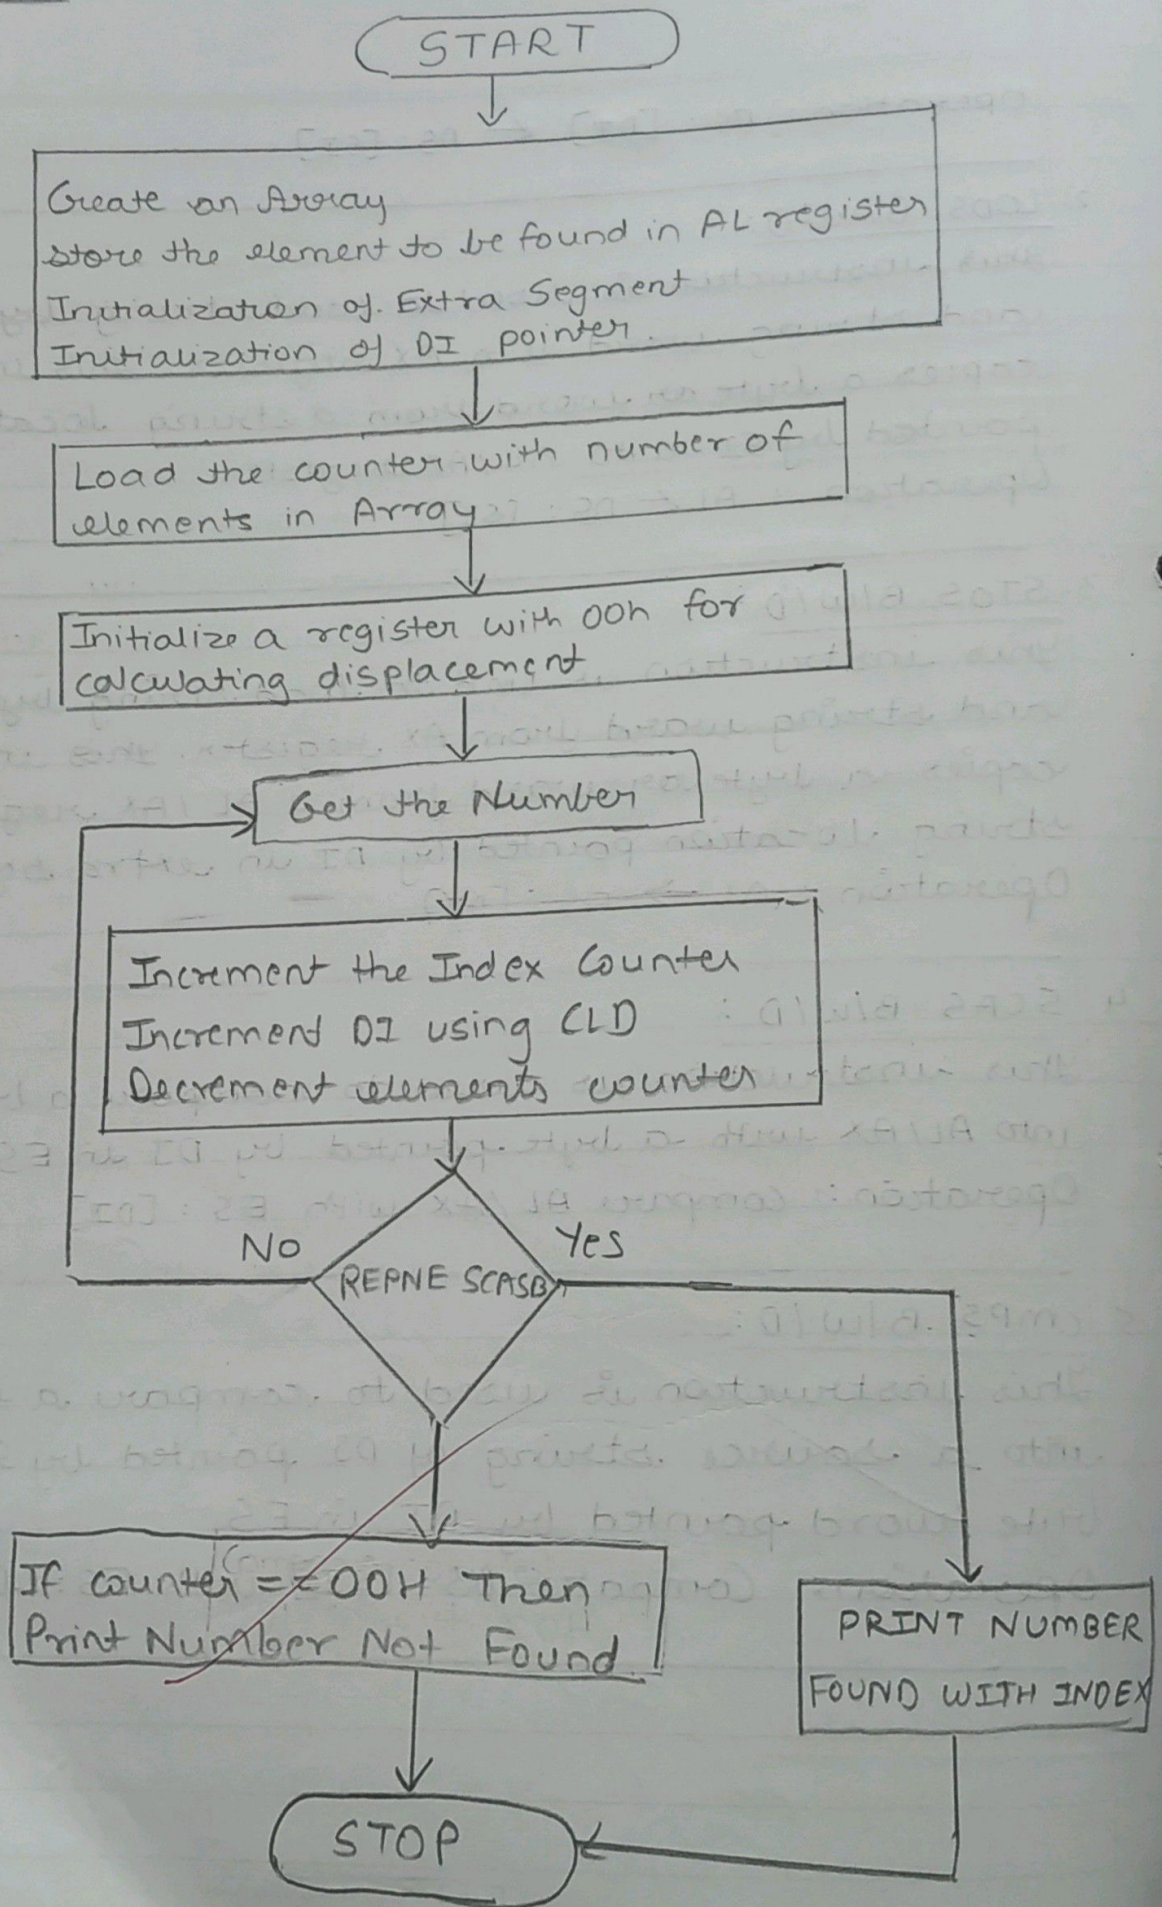 START
Create an Array
store the element to be found in AL register
Initialization of Extra Segment
Initialization of DI pointer.
Load the counter with number of
elements in Array
Initialize a register with 00h for
calculating displacement
Get the Number
Increment the Index Counter
Increment DI using CLD
Decrement elements counter
No
Yes
REPNE SCASB
If counter == 00H Then
Print Number Not Found.
PRINT NUMBER
FOUND WITH INDEX
STOP